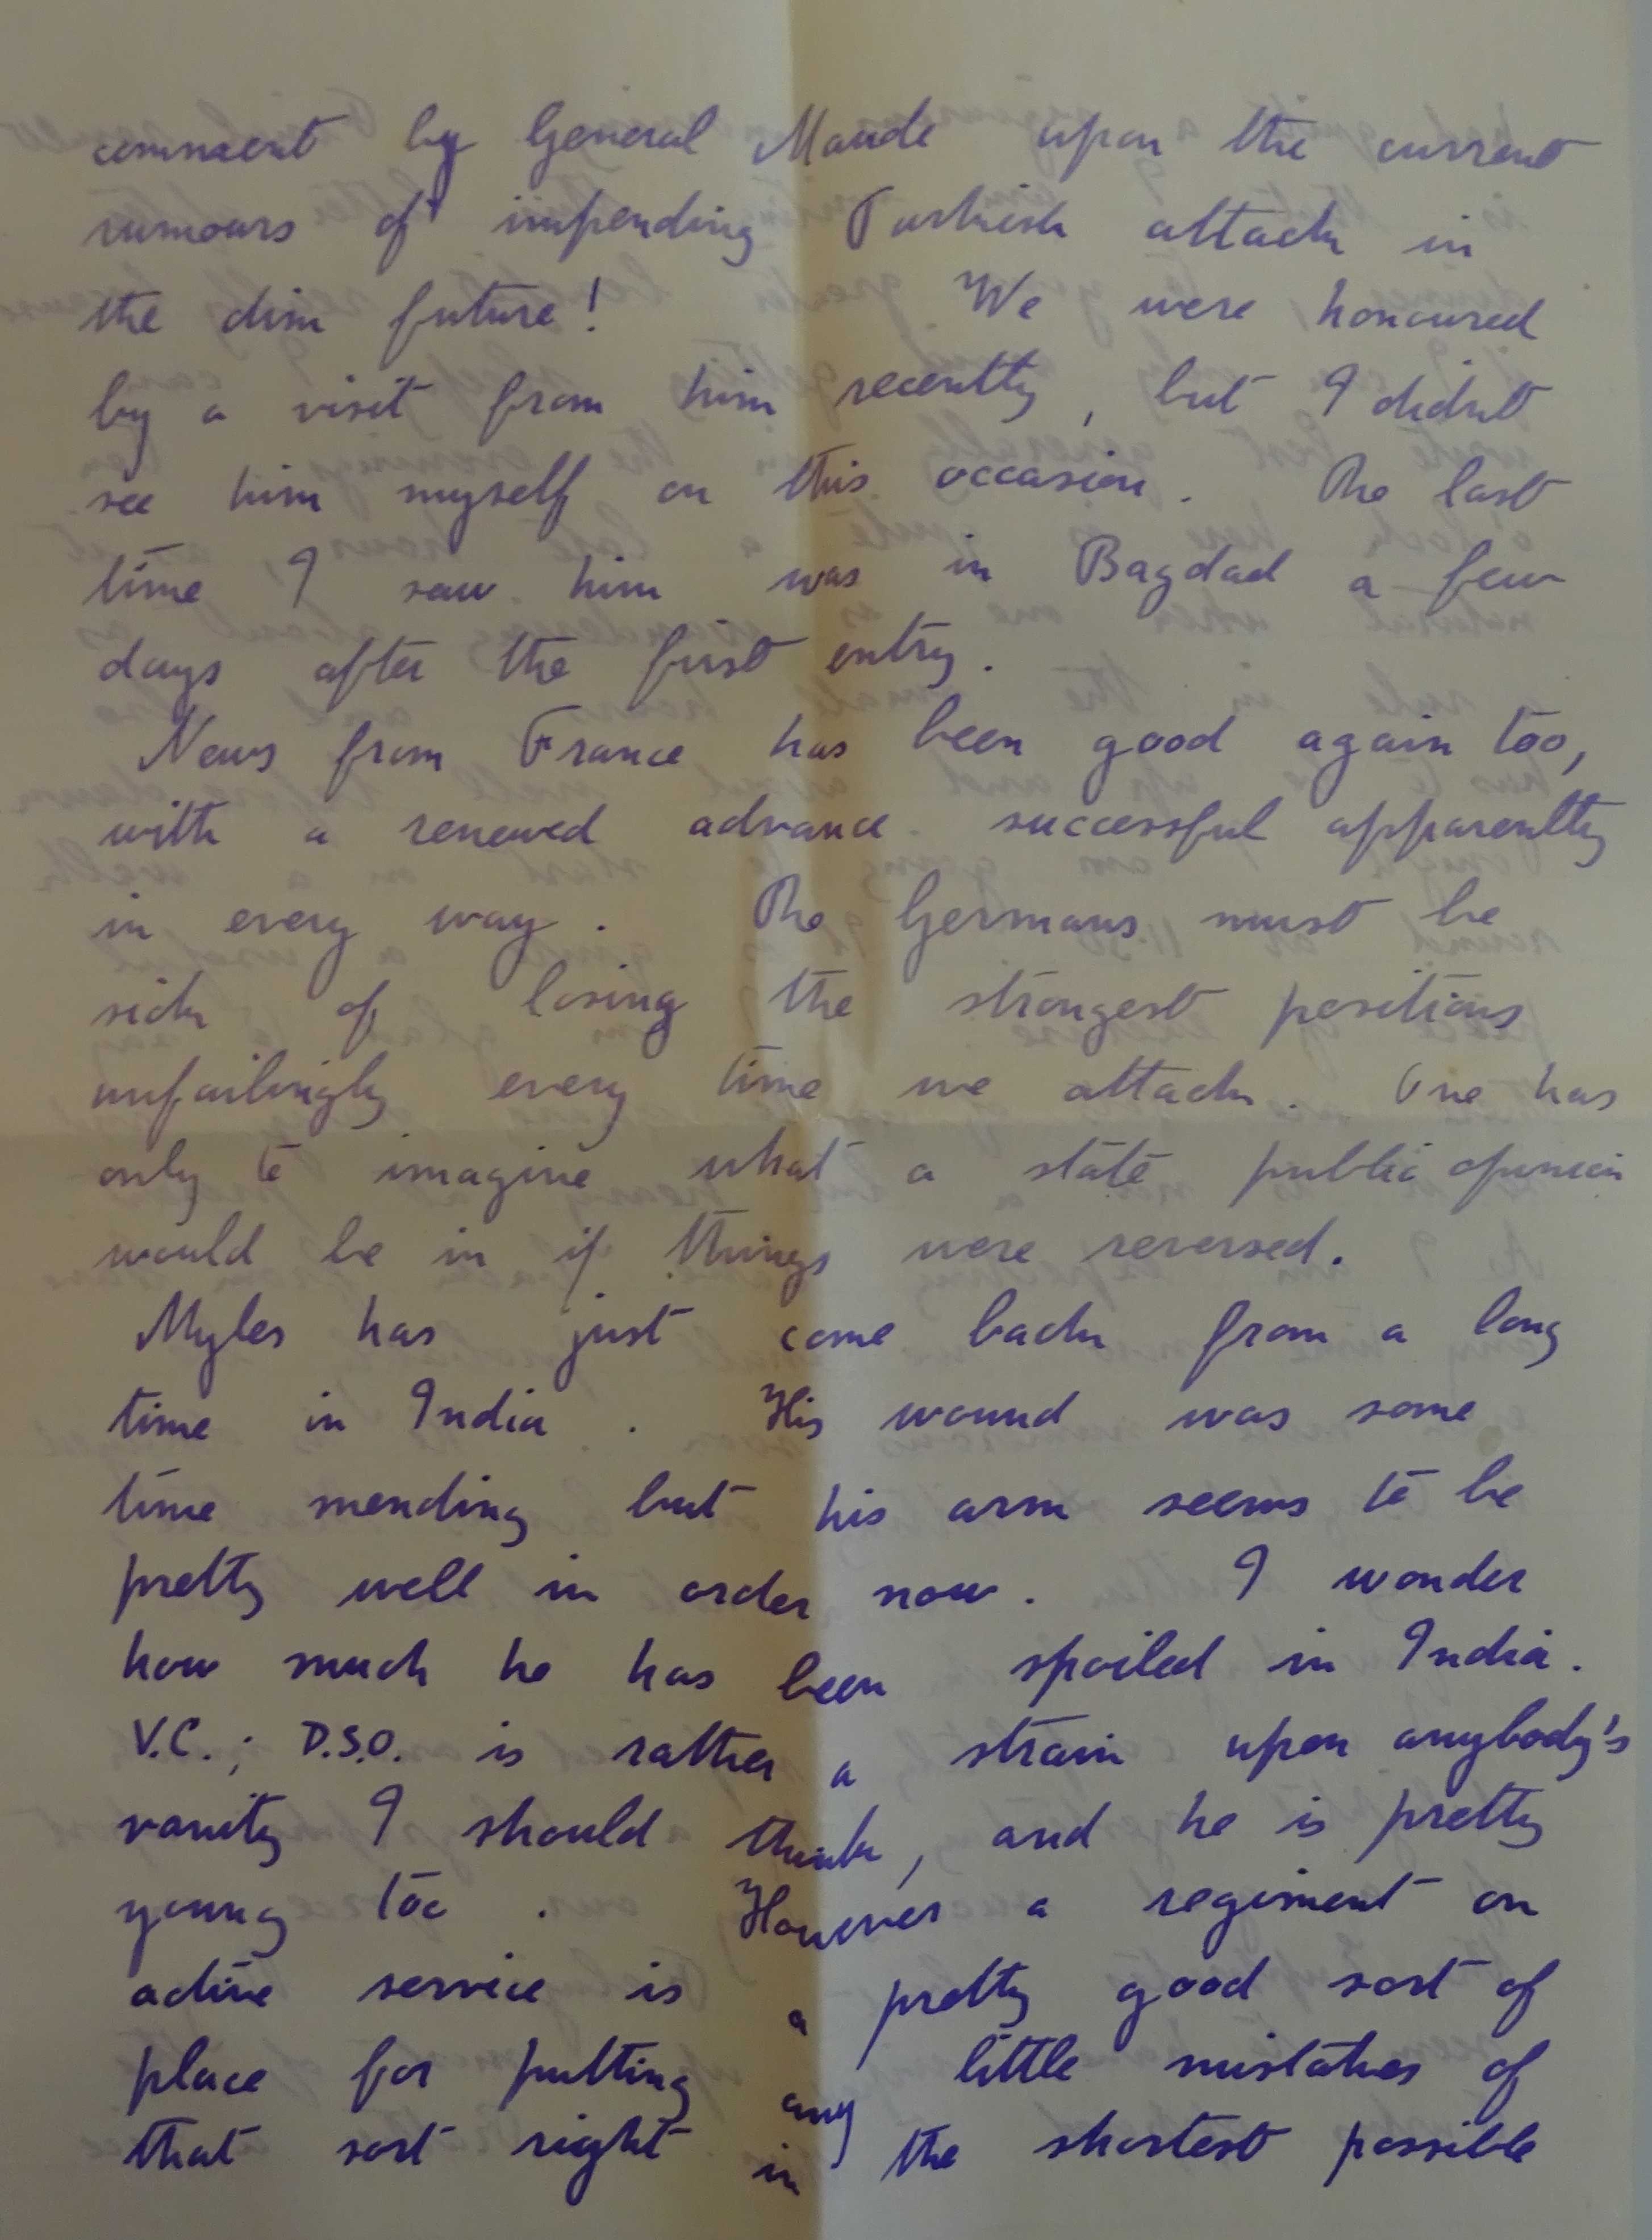 comment by General Maude upon the current
rumours of impending Turkish attack in
the dim future! We were honoured
by a visit from him recently, but I didnt
see him myself on this occasion. The last
time I saw him was in Bagdad a few
days after the first entry.
News from France has been good again too,
with a renewed advance successful apparently
in every way. The Germans must be
sick of losing the strongest positions
unfailingly every time we attack. One has
only to imagine what a state public opinion
would be in if things were reversed.
Myles has just come back from a long
time in India. His wound was some
time mending but his arm seems to be
pretty well in order now. I wonder
how much he has been spoiled in India.
V.C.; D.S.O. is rather a strain upon anybody's
vanity I should think, and he is pretty
young too. However a regiment on
active service is a pretty good sort of
place for putting any little mistakes of
that sort right in the shortest possible